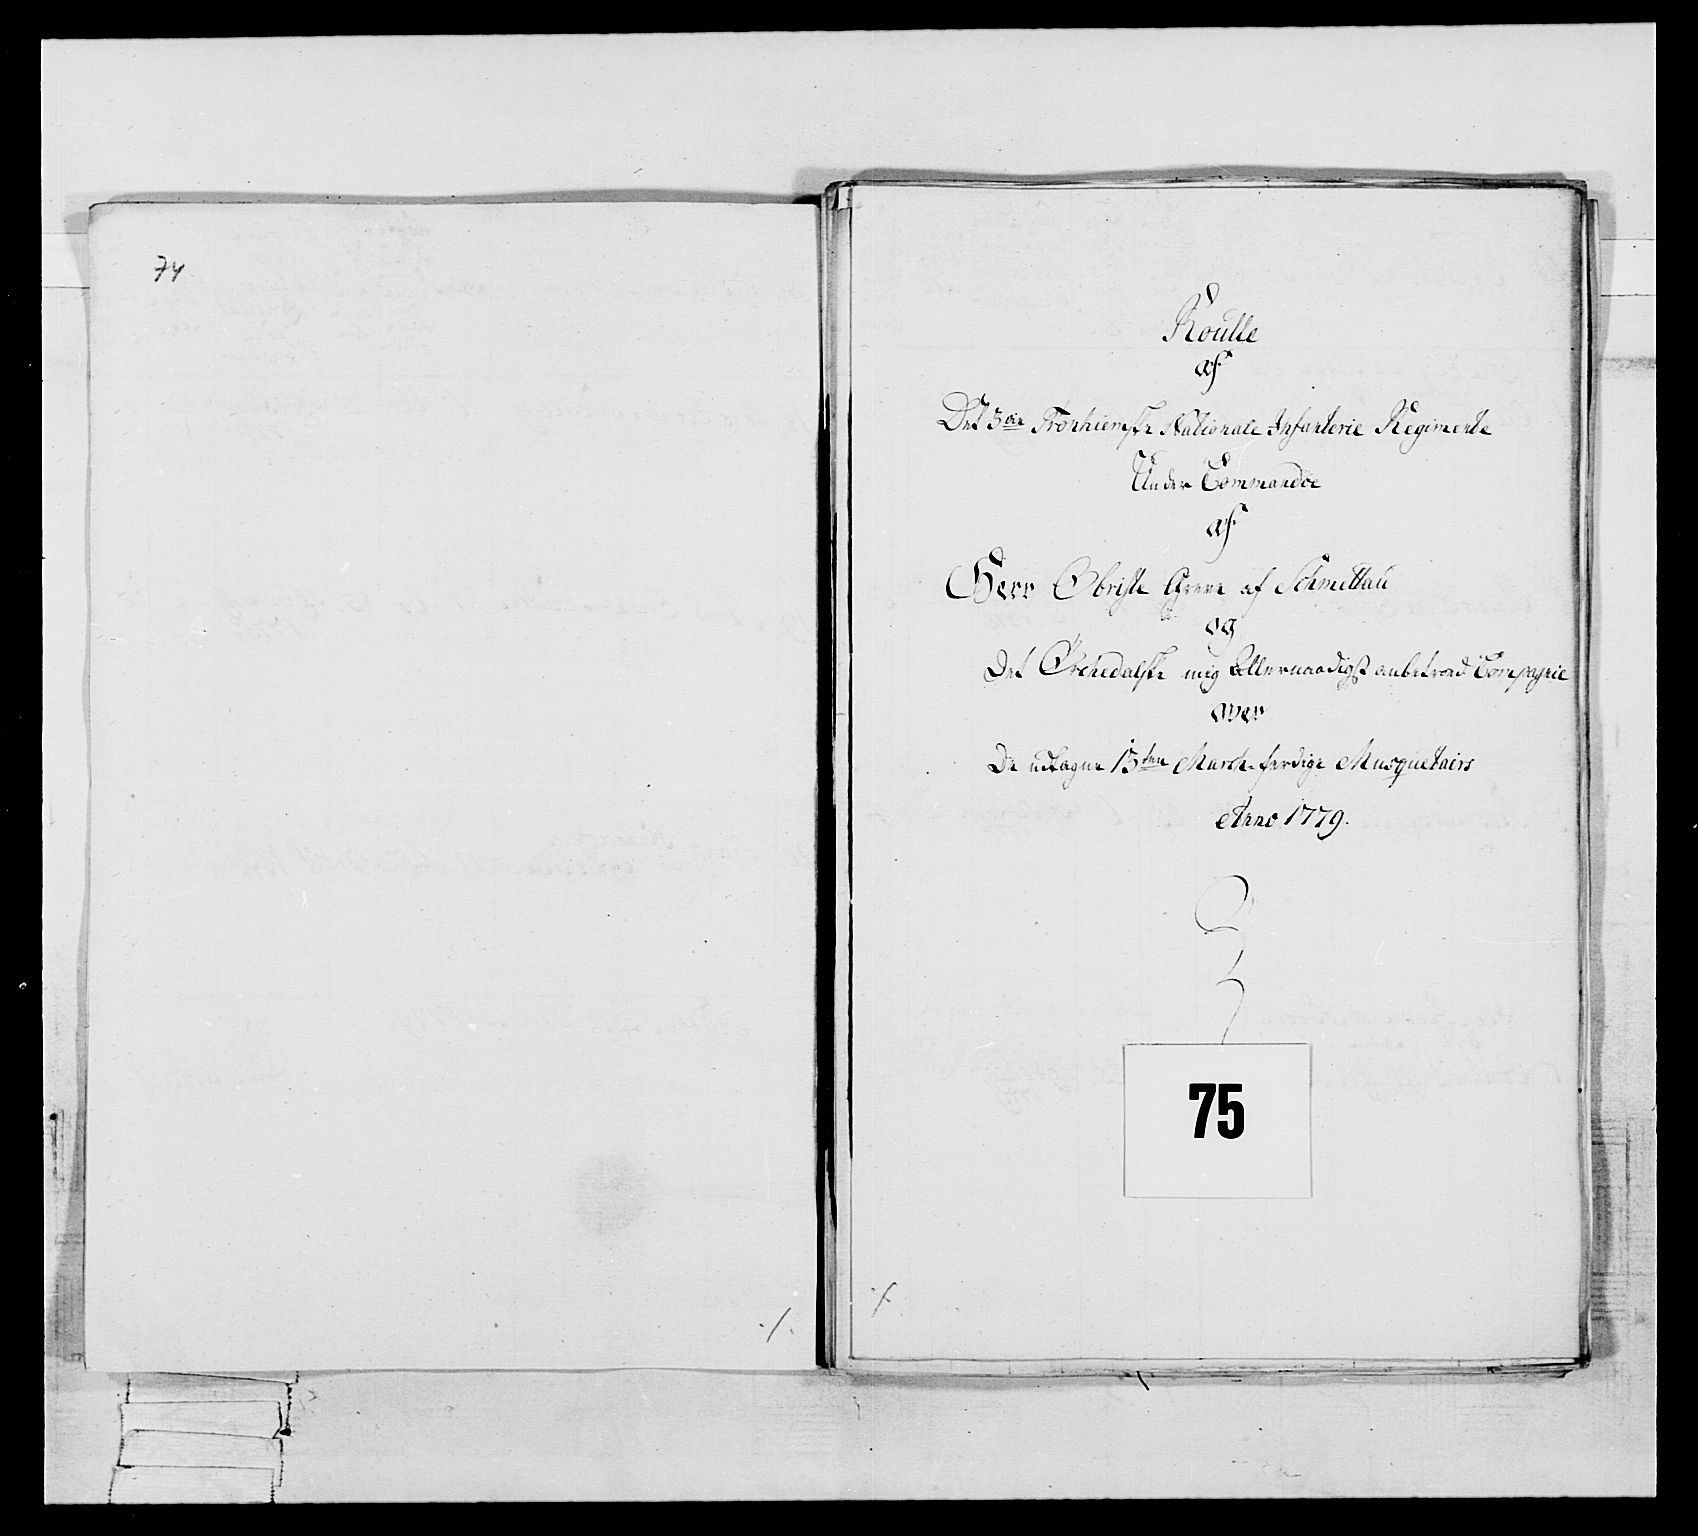 74
Roulle
af
Det 3die Tronhiemske Nationale Infanterie Regimente
Under Commandoe
af
Herr Obriste Greve af Schmettau
og
Det Örchedalske mig Allernaadigst anbetroed Compagnie
over
De udtagne 15ten March-færdige Musquetairs
Anno 1779.
75